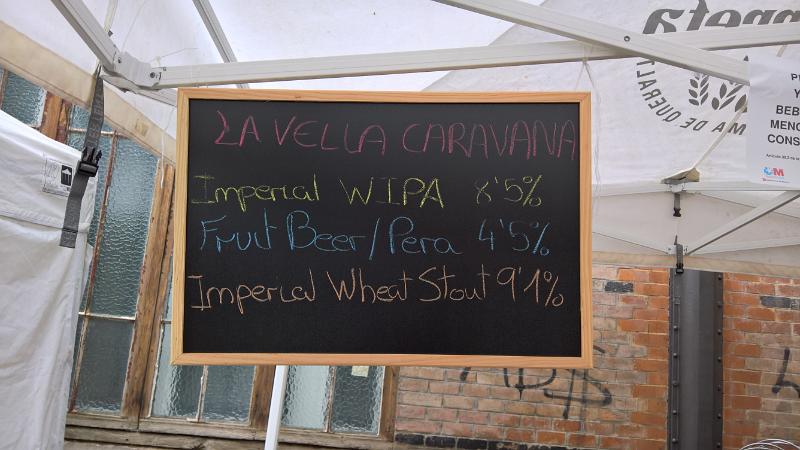 LA VELLA CARAVANA
Imperial WIPA 8'5%
Fruit Beer/Pera 4'5%
Imperial Wheat Stout 9'1%
MA DE QUERAL
BEB
MENO
CONS